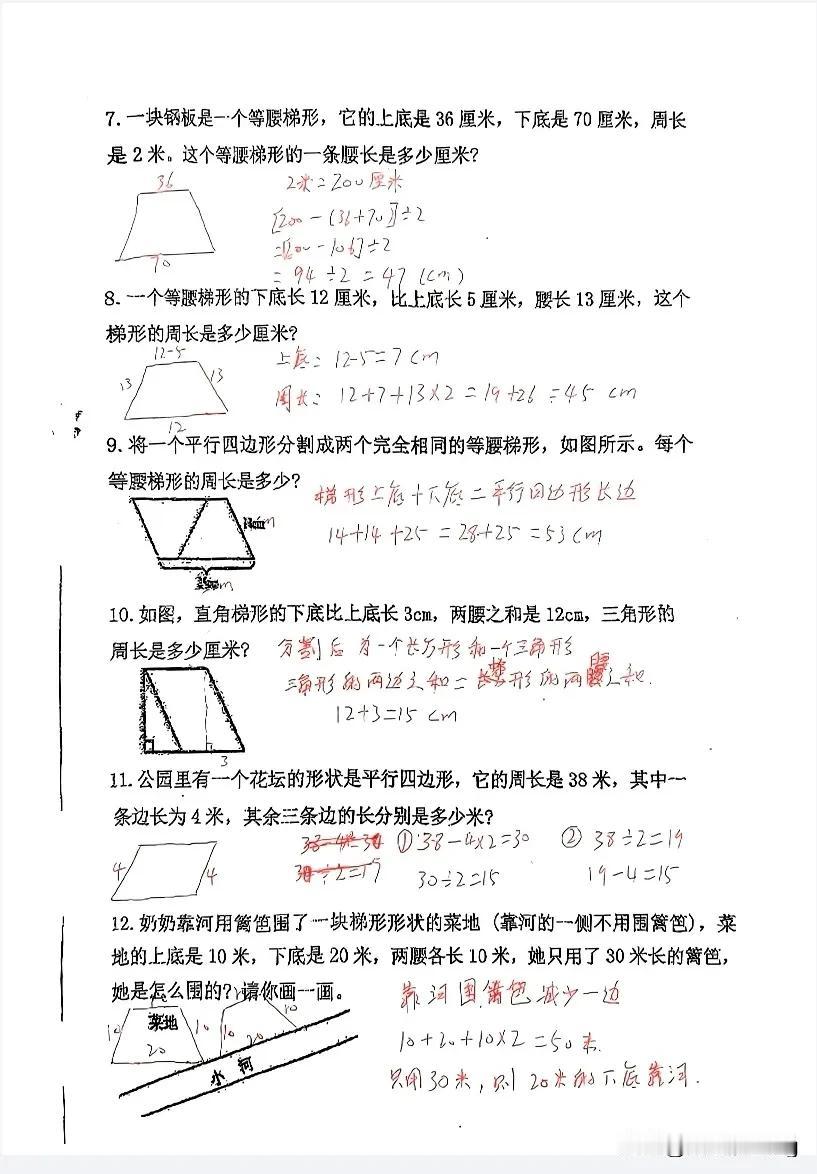 7. 一块钢板是一个等腰梯形，它的上底是 36 厘米，下底是 70 厘米，周长
是 2 米。这个等腰梯形的一条腰长是多少厘米？
36
2米=200厘米
[200-(36+70)]÷2
=[200-106]÷2
70
=94÷2=47(cm)
8. 一个等腰梯形的下底长 12 厘米，比上底长 5 厘米，腰长 13 厘米，这个
梯形的周长是多少厘米？
12-5
上底：12-5=7cm
13 13
周长：12+7+13×2=19+26=45 cm
12
9. 将一个平行四边形分割成两个完全相同的等腰梯形，如图所示。每个
等腰梯形的周长是多少？
梯形上底+下底=平行四边形长边
14+14+25=28+25=53cm
10. 如图，直角梯形的下底比上底长 3cm，两腰之和是 12cm，三角形的
周长是多少厘米？
分割后为一个长方形和一个三角形
三角形的两边之和=梯形的两腰之和.
12+3=15 cm
3
11. 公园里有一个花坛的形状是平行四边形，它的周长是 38 米，其中一
条边长为 4 米，其余三条边的长分别是多少米？
①38-4×2=30 ②38÷2=19
4 4
30÷2=15 19-4=15
12. 奶奶靠河用篱笆围了一块梯形形状的菜地（靠河的一侧不用围篱笆），菜
地的上底是 10 米，下底是 20 米，两腰各长 10 米，她只用了 30 米长的篱笆，
她是怎么围的？请你画一画。
靠河围篱笆减少一边
10 菜地 10 10 10
20 20
10+20+10×2=50米.
小河
只用30米，则20米的下底靠河.